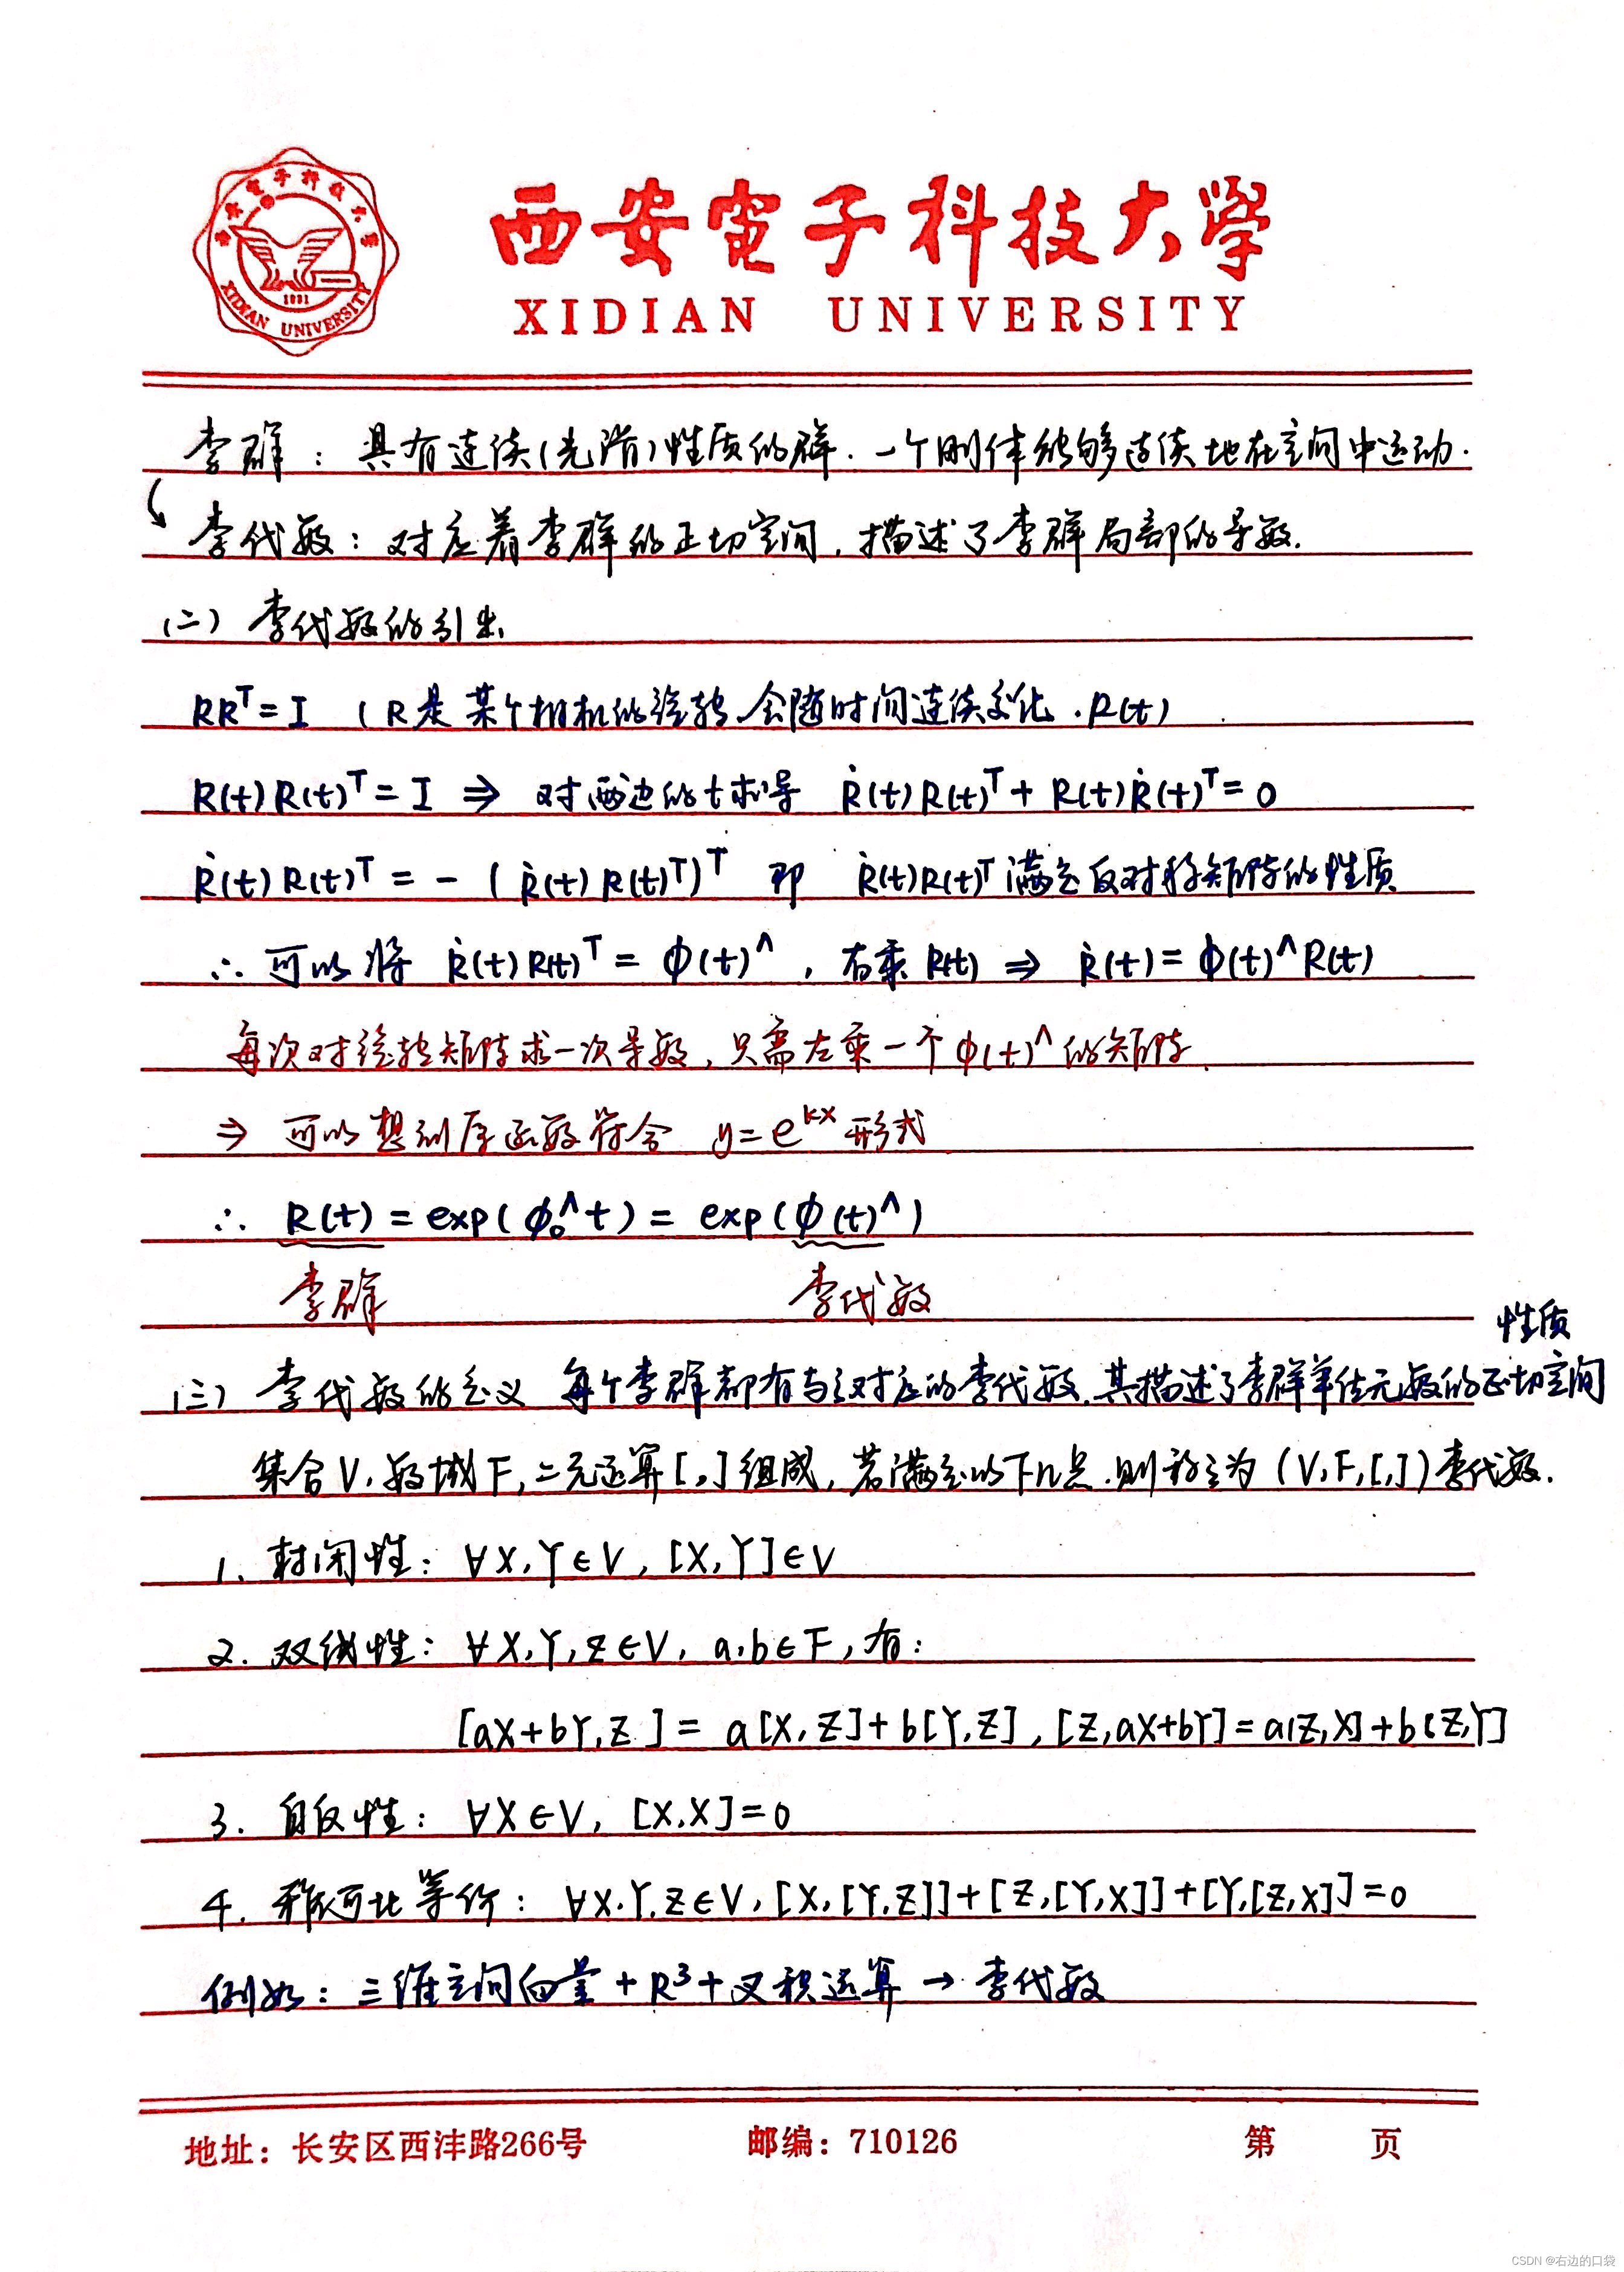 西安電子科技大學
XIDIAN UNIVERSITY
西安电子科技大学
1931
XIDIAN UNIVERSITY
李群：具有连续(光滑)性质的群．一个刚体能够连续地在空间中运动．
李代数：对应着李群的正切空间，描述了李群局部的导数．
(二) 李代数的引出
RRᵀ=I (R是某个相机的旋转，会随时间连续变化．R(t)
R(t)R(t)ᵀ=I ⇒ 对两边的t求导 Ṙ(t)R(t)ᵀ+R(t)Ṙ(t)ᵀ=0
Ṙ(t)R(t)ᵀ=-(Ṙ(t)R(t)ᵀ)ᵀ 即 Ṙ(t)R(t)ᵀ满足反对称矩阵的性质
∴ 可以将 Ṙ(t)R(t)ᵀ=ϕ(t)^，右乘R(t) ⇒ Ṙ(t)=ϕ(t)^R(t)
每次对旋转矩阵求一次导数，只需左乘一个ϕ(t)^的矩阵．
⇒ 可以想到原函数符合 y=eᵏˣ形式
∴ R(t)=exp(ϕ₀^t)=exp(ϕ(t)^)
李群 李代数
性质
(三) 李代数的定义 每个李群都有与之对应的李代数．其描述了李群单位元数的正切空间
集合V，数域F，二元运算[,]组成，若满足以下几点．则称之为(V,F,[,])李代数．
1. 封闭性：∀X,Y∈V，[X,Y]∈V
2. 双线性：∀X,Y,Z∈V，a,b∈F，有：
[aX+bY,Z]=a[X,Z]+b[Y,Z]，[Z,aX+bY]=a[Z,X]+b[Z,Y]
3. 自反性：∀X∈V，[X,X]=0
4. 雅可比等价：∀X,Y,Z∈V，[X,[Y,Z]]+[Z,[Y,X]]+[Y,[Z,X]]=0
例如：三维空间向量+R³+叉积运算→李代数
地址：长安区西沣路266号 邮编：710126 第 页
CSDN @右边的口袋